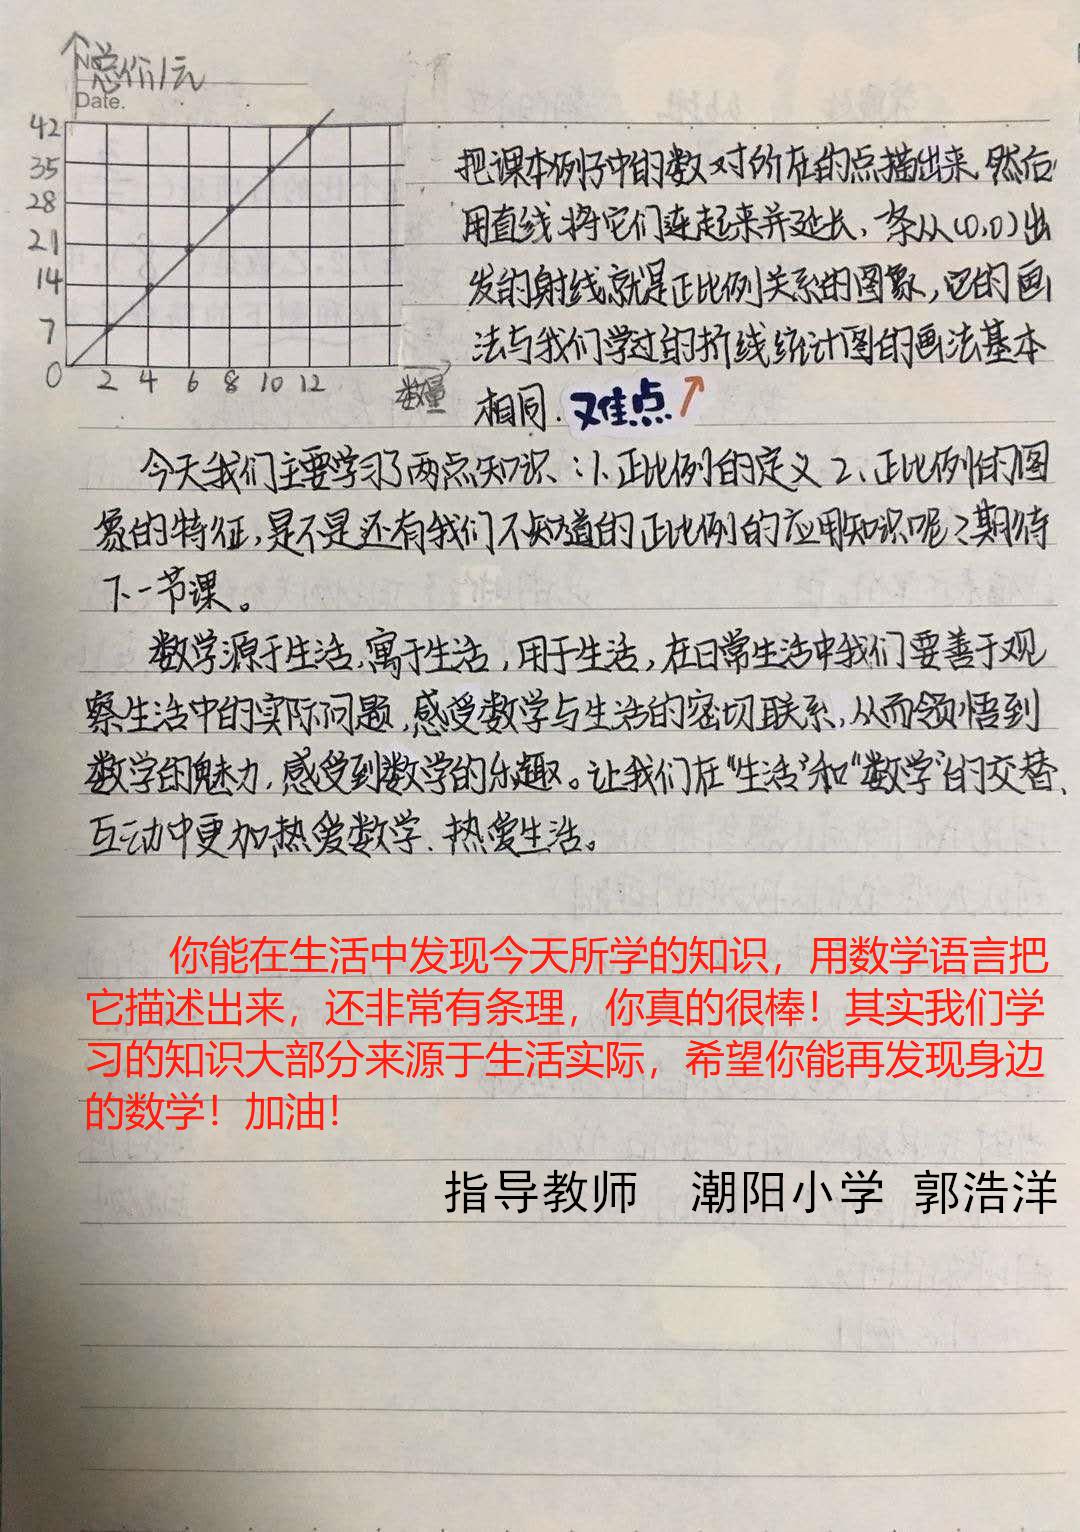 No.
总价/元
Date.
42
35
28
21
14
7
0 2 4 6 8 10 12
数量
把课本例子中的数对所在的点描出来,然后
用直线将它们连起来并延长,一条从(0,0)出
发的射线就是正比例关系的图象,它的画
法与我们学过的折线统计图的画法基本
相同.难点
今天我们主要学习了两点知识:1.正比例的定义 2、正比例的图
象的特征,是不是还有我们不知道的正比例的应用知识呢?期待
下一节课。
数学源于生活,寓于生活,用于生活,在日常生活中我们要善于观
察生活中的实际问题,感受数学与生活的密切联系,从而领悟到
数学的魅力,感受到数学的乐趣。让我们在“生活”和“数学”的交替、
互动中更加热爱数学、热爱生活。
你能在生活中发现今天所学的知识，用数学语言把
它描述出来，还非常有条理，你真的很棒！其实我们学
习的知识大部分来源于生活实际，希望你能再发现身边
的数学！加油！
指导教师 潮阳小学 郭浩洋